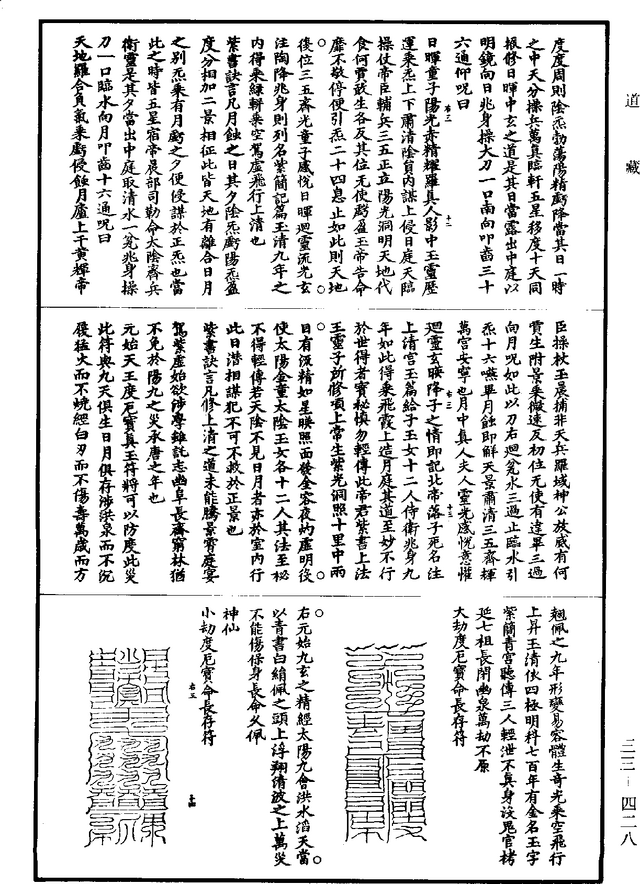 度度周則陰炁勃蕩陽精虧降當其日一時
之中天分操兵萬真臨軒五星移度十天同
根修日暉中玄之道是其日當露出中庭以
明鏡向日兆身操大刀一口南向叩齒三十
六通仰呪曰
日暉童子陽光赤精輝羅真人影中玉靈歷
運乘炁上下肅清陰貟內謀上侵日庭天臨
操仗帝臣輔兵三五正立陽光洞明天地代
食何貢敢生各反其位无使虧盈玉帝告命
靡不敬停便引炁二十四息止如此則天地
復位三五齊光童子感悅日暉迴靈流光玄
注陶降兆身則列名紫簡記篇玉清九年之
內得乘綠軿乘空駕虛飛行上清也
紫書訣言凡月蝕之日其夕陰炁虧陽炁盈
度分相加二景相征此皆天地有離合日月
之別炁乘有月虧之夕便侵謀於正炁也當
此之時皆五星宿帝晨部司勒命太陰齊兵
衛靈是其夕當出中庭取清水一瓮兆身操
刀一口臨水向月叩齒十六通呪曰
天地羅合負氣乘虧侵蝕月廬上干黃輝帝
臣操杖玉晨捕非天兵羅域神公放威有何
貢生附景乘微速反初位无使有違畢三過
向月呪如此以刀右迴瓮水三過止臨水引
炁十六嚥畢月蝕即解天景肅清三五齊輝
萬宮安寧也月中真人夫人靈光感悅意懽
迴靈玄映降子之情即記北帝落子死名注
上清宮玉篇給子玉女十二人侍衛兆身九
年如此得乘飛霞上造月庭其道至妙不行
於世得者寶秘慎勿輕傳此帝君紫書上法
王靈子所修項上常生紫光洞照十里中兩
目有流精如星映照面後金容夜𠃔虛明役
使太陽金童太陰玉女各十二人其法至秘
不得輕傳若天陰不見日月者亦於室內行
此日潛相謀犯不可不救於正景也
紫書訣言凡修上清之道未能騰景霄庭宴
駕紫虛始欲涉學雖託志幽阜長齋窮林猶
不免於陽九之災承唐之年也
元始天王度厄寶真玉符將可以防度此災
此符與九天俱生日月俱存涉洪泉而不沉
履猛火而不燒經白刃而不傷壽萬歲而方
翹佩之九年形變易容體生奇光乘空飛行
上昇玉清依四極明科七百年有金名玉字
紫簡青宮聽傳三人輕泄不真身沒鬼官拷
延七祖長閉幽泉萬劫不原
大劫度厄寶命長存符
右元始九玄之精經太陽九會洪水滔天當
以青書白絹佩之頭上浮翔清波之上萬災
不能傷保身長命久佩
神仙
小劫度厄寶命長存符
道藏
三三—四二八